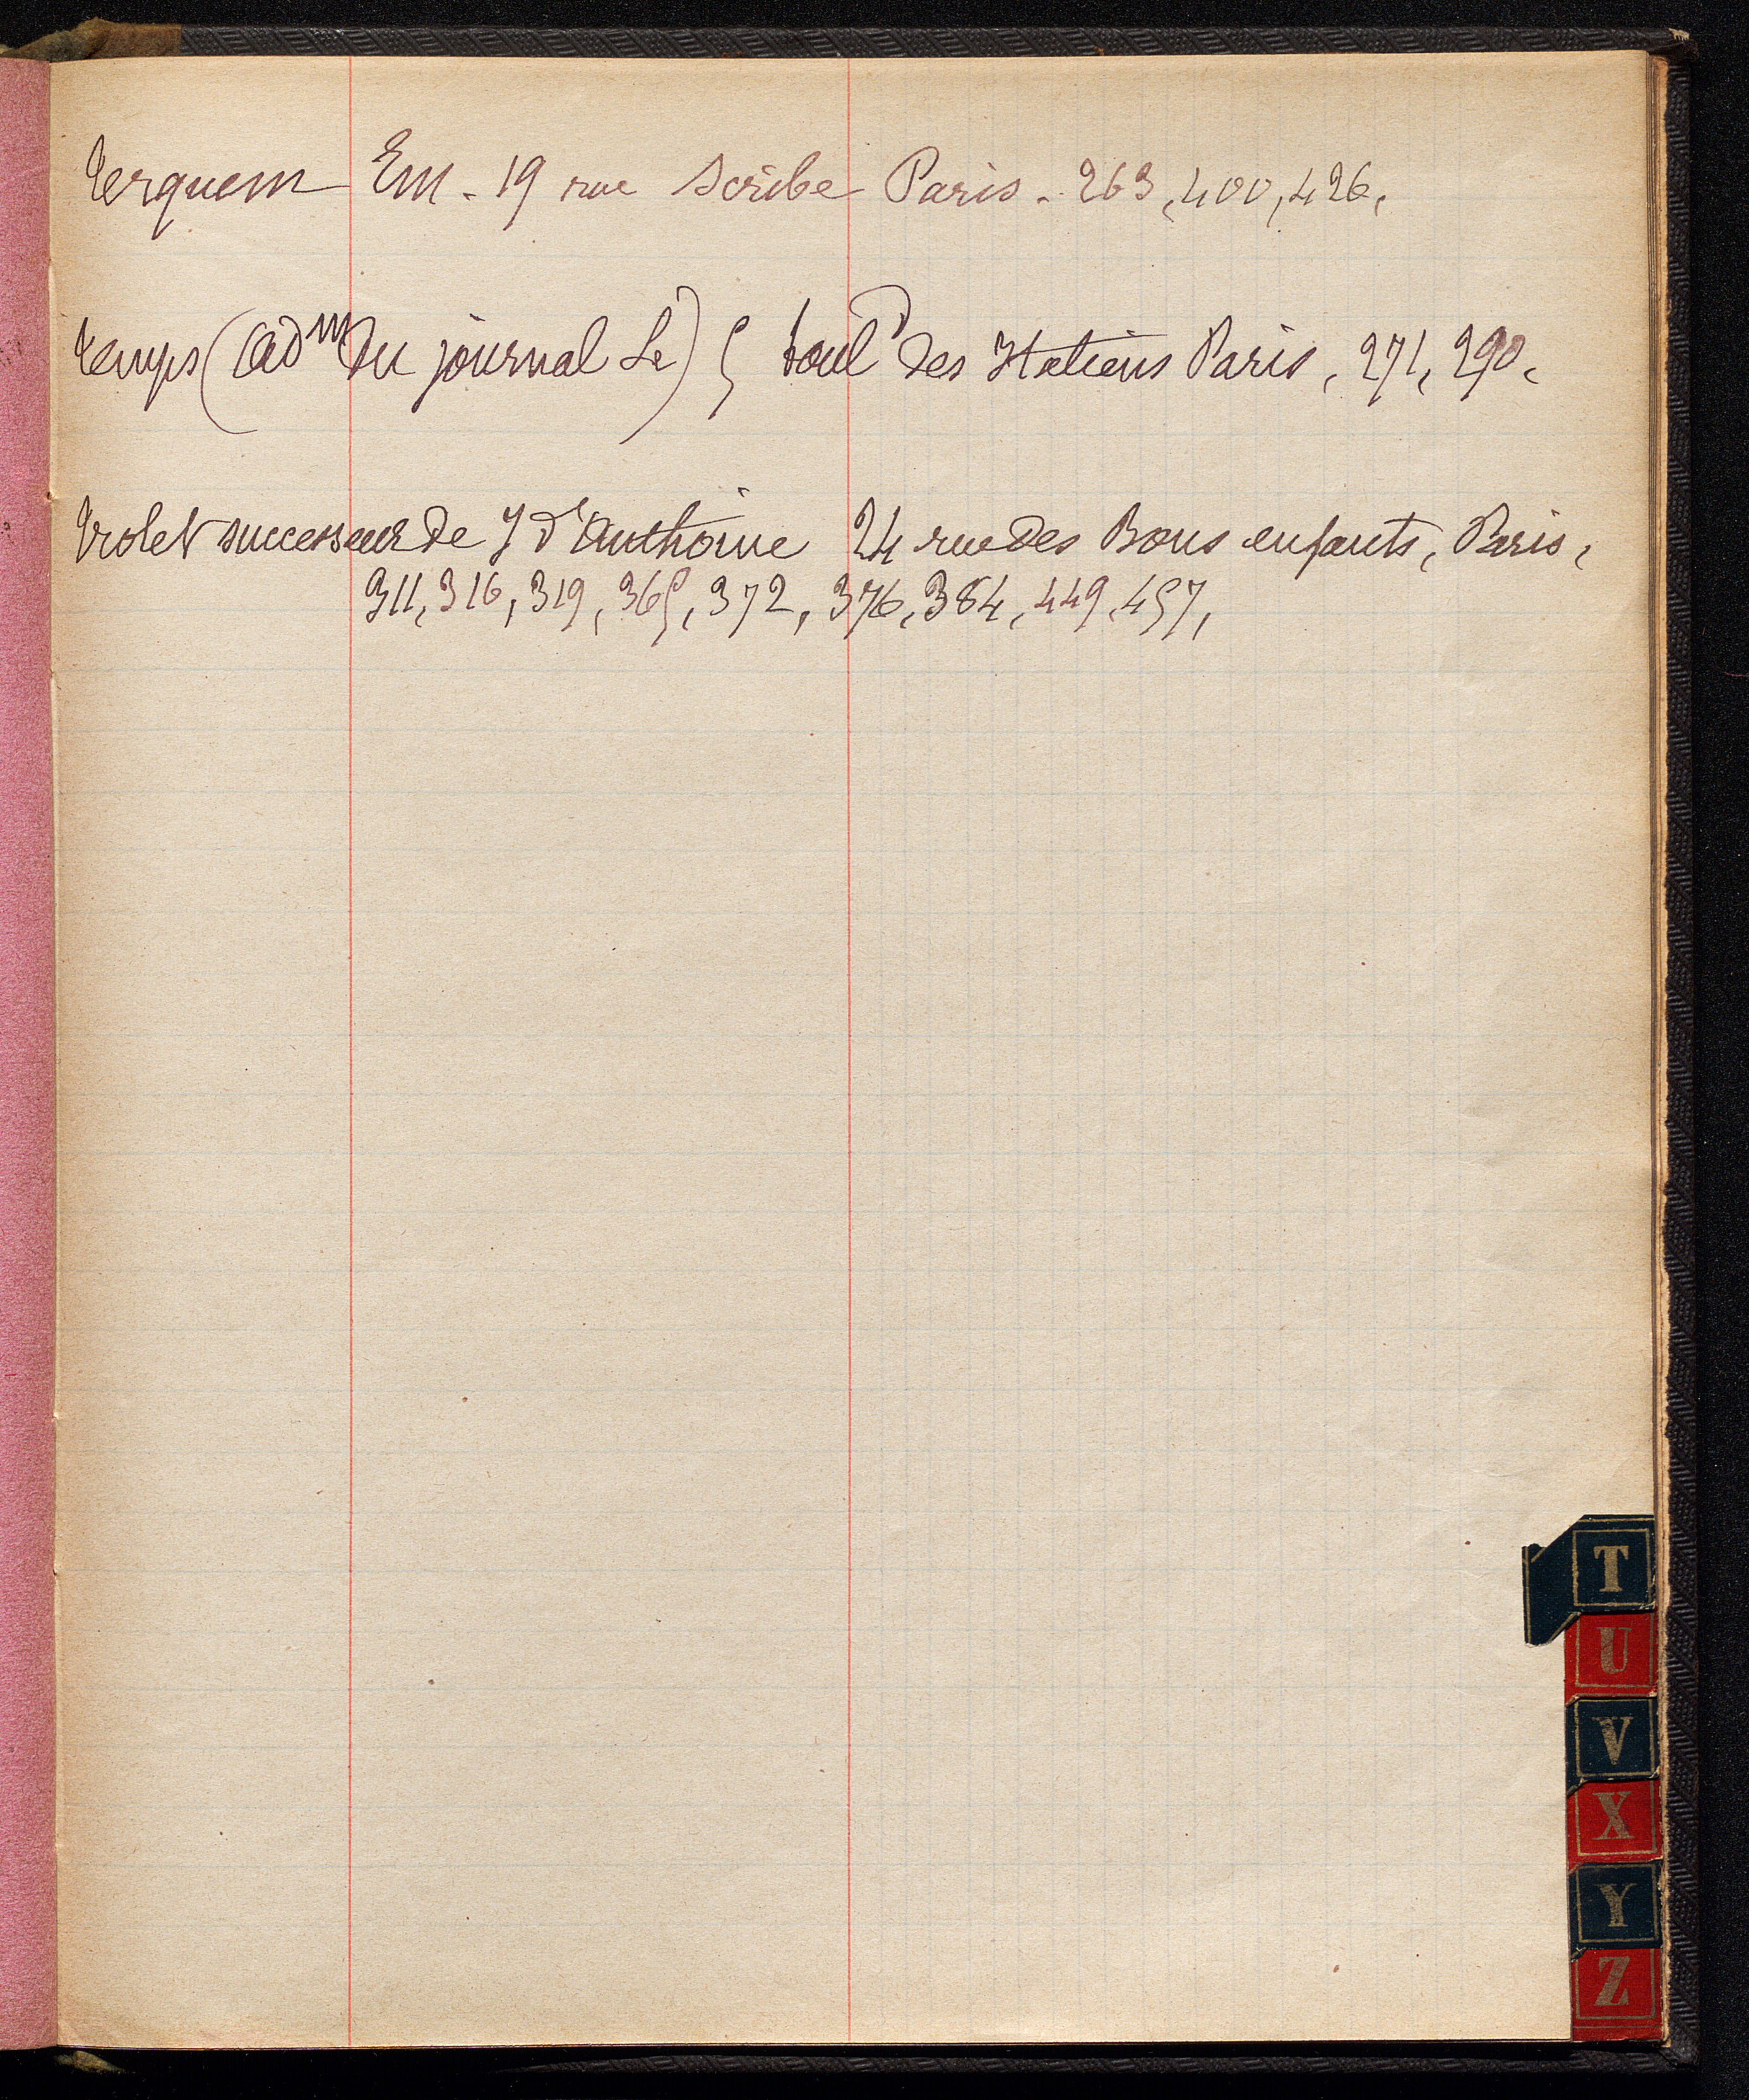 Terquem Em - 19 rue Scribe Paris - 263, 400, 426,
Temps (Adm du journal Le) 5 boul^d des Italiens Paris, 271, 290,
Trolet successeur de J d'Anthoine 24 rue des Bons enfants, Paris,
311, 316, 319, 365, 372, 376, 384, 449, 457,
T
U
V
X
Y
Z